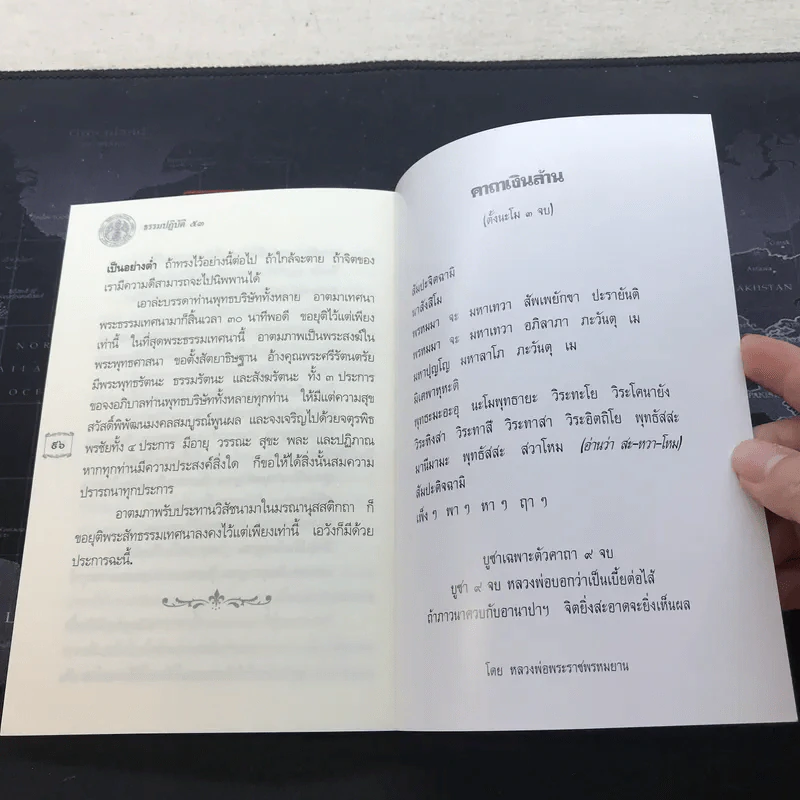 ธรรมปฏิบัติ ๕๓
เป็นอย่างต่ำ ถ้าทรงไว้อย่างนี้ต่อไป ถ้าใกล้จะตาย ถ้าจิตของ
เรามีความดีสามารถจะไปนิพพานได้
เอาล่ะบรรดาท่านพุทธบริษัททั้งหลาย อาตมาเทศนา
พระธรรมเทศนามาก็สิ้นเวลา ๓๐ นาทีพอดี ขอยุติไว้แต่เพียง
เท่านี้ ในที่สุดพระธรรมเทศนานี้ อาตมภาพเป็นพระสงฆ์ใน
พระพุทธศาสนา ขอตั้งสัตยาธิษฐาน อ้างคุณพระศรีรัตนตรัย
มีพระพุทธรัตนะ ธรรมรัตนะ และสังฆรัตนะ ทั้ง ๓ ประการ
ขอจงอภิบาลท่านพุทธบริษัททั้งหลายทุกท่าน ให้มีแต่ความสุข
สวัสดิ์พิพัฒนมงคลสมบูรณ์พูนผล และจงเจริญไปด้วยจตุรพิธ
พรชัยทั้ง ๔ ประการ มีอายุ วรรณะ สุขะ พละ และปฏิภาณ
หากทุกท่านมีความประสงค์สิ่งใด ก็ขอให้ได้สิ่งนั้นสมความ
ปรารถนาทุกประการ
อาตมภาพรับประทานวิสัชนามาในมรณานุสสติกถา ก็
ขอยุติพระสัทธรรมเทศนาลงคงไว้แต่เพียงเท่านี้ เอวังก็มีด้วย
ประการฉะนี้.
๕๖
คาถาเงินล้าน
(ตั้งนะโม ๓ จบ)
สัมปะจิตฉามิ
นาสังสิโม
พรหมมา จะ มหาเทวา สัพเพยักขา ปะรายันติ
พรหมมา จะ มหาเทวา อภิลาภา ภะวันตุ เม
มหาปุญโญ มหาลาโภ ภะวันตุ เม
มิเตพาหุหะติ
พุทธะมะอะอุ นะโมพุทธายะ วิระทะโย วิระโคนายัง
วิระหิงสา วิระทาสี วิระทาสา วิระอิตถิโย พุทธัสสะ
มานีมามะ พุทธัสสะ สวาโหม (อ่านว่า สะ-หวา-โหม)
สัมปะติจฉามิ
เพ็ง ๆ พา ๆ หา ๆ ฤา ๆ
บูชาเฉพาะตัวคาถา ๙ จบ
บูชา ๙ จบ หลวงพ่อบอกว่าเป็นเบี้ยต่อไส้
ถ้าภาวนาควบกับอานาปาฯ จิตยิ่งสะอาดจะยิ่งเห็นผล
โดย หลวงพ่อพระราชพรหมยาน